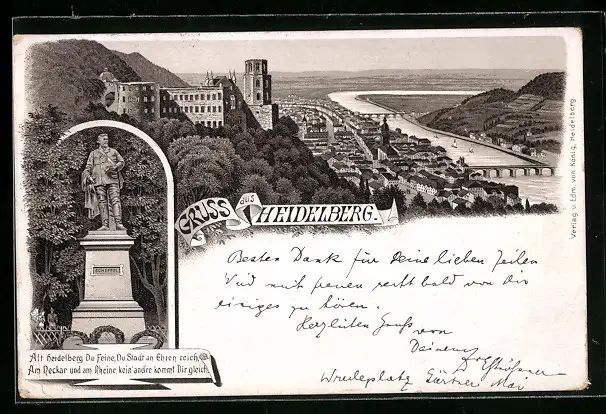 GRUSS aus HEIDELBERG.
SCHEFFEL
Alt Heidelberg Du Feine, Du Stadt an Ehren reich,
Am Neckar und am Rheine, kein' andre kommt Dir gleich.
Besten Dank für Deine lieben Zeilen
mich freuen recht bald von Dir
einiges zu hören.
Herzlichen Gruss von
Deinem
Wredeplatz
Verlag v. Edm. von König, Heidelberg